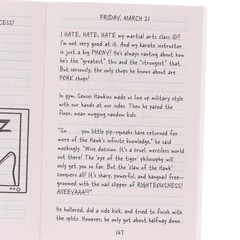 CESS!
FRIDAY, MARCH 21
I HATE, HATE, HATE my martial arts class ☹!!
I'm not very good at it. And my karate instructor
is just a big PHONY!! He's always ranting about how
he's the "greatest" this and the "strongest" that.
But seriously, the only chops he knows about are
PORK chops!
In gym, Sensei Hawkins made us line up military style
with our hands at our sides. Then he paced the
floor, mean mugging random kids.
"So . . . . . you little pip-squeaks have returned for
more of the Hawk's infinite knowledge," he said
mockingly. "Wise decision. It's a cruel, merciless world
out there! The 'eye of the tiger' philosophy will
only get you so far. But the 'claw of the Hawk'
conquers all! It's sharp, powerful, and hangnail free—
groomed with the nail clipper of RIGHTEOUSNESS!
AIYEEYAAA!!!"
He hollered, did a side kick, and tried to finish with
the splits. However, he only got about halfway down
167
Z